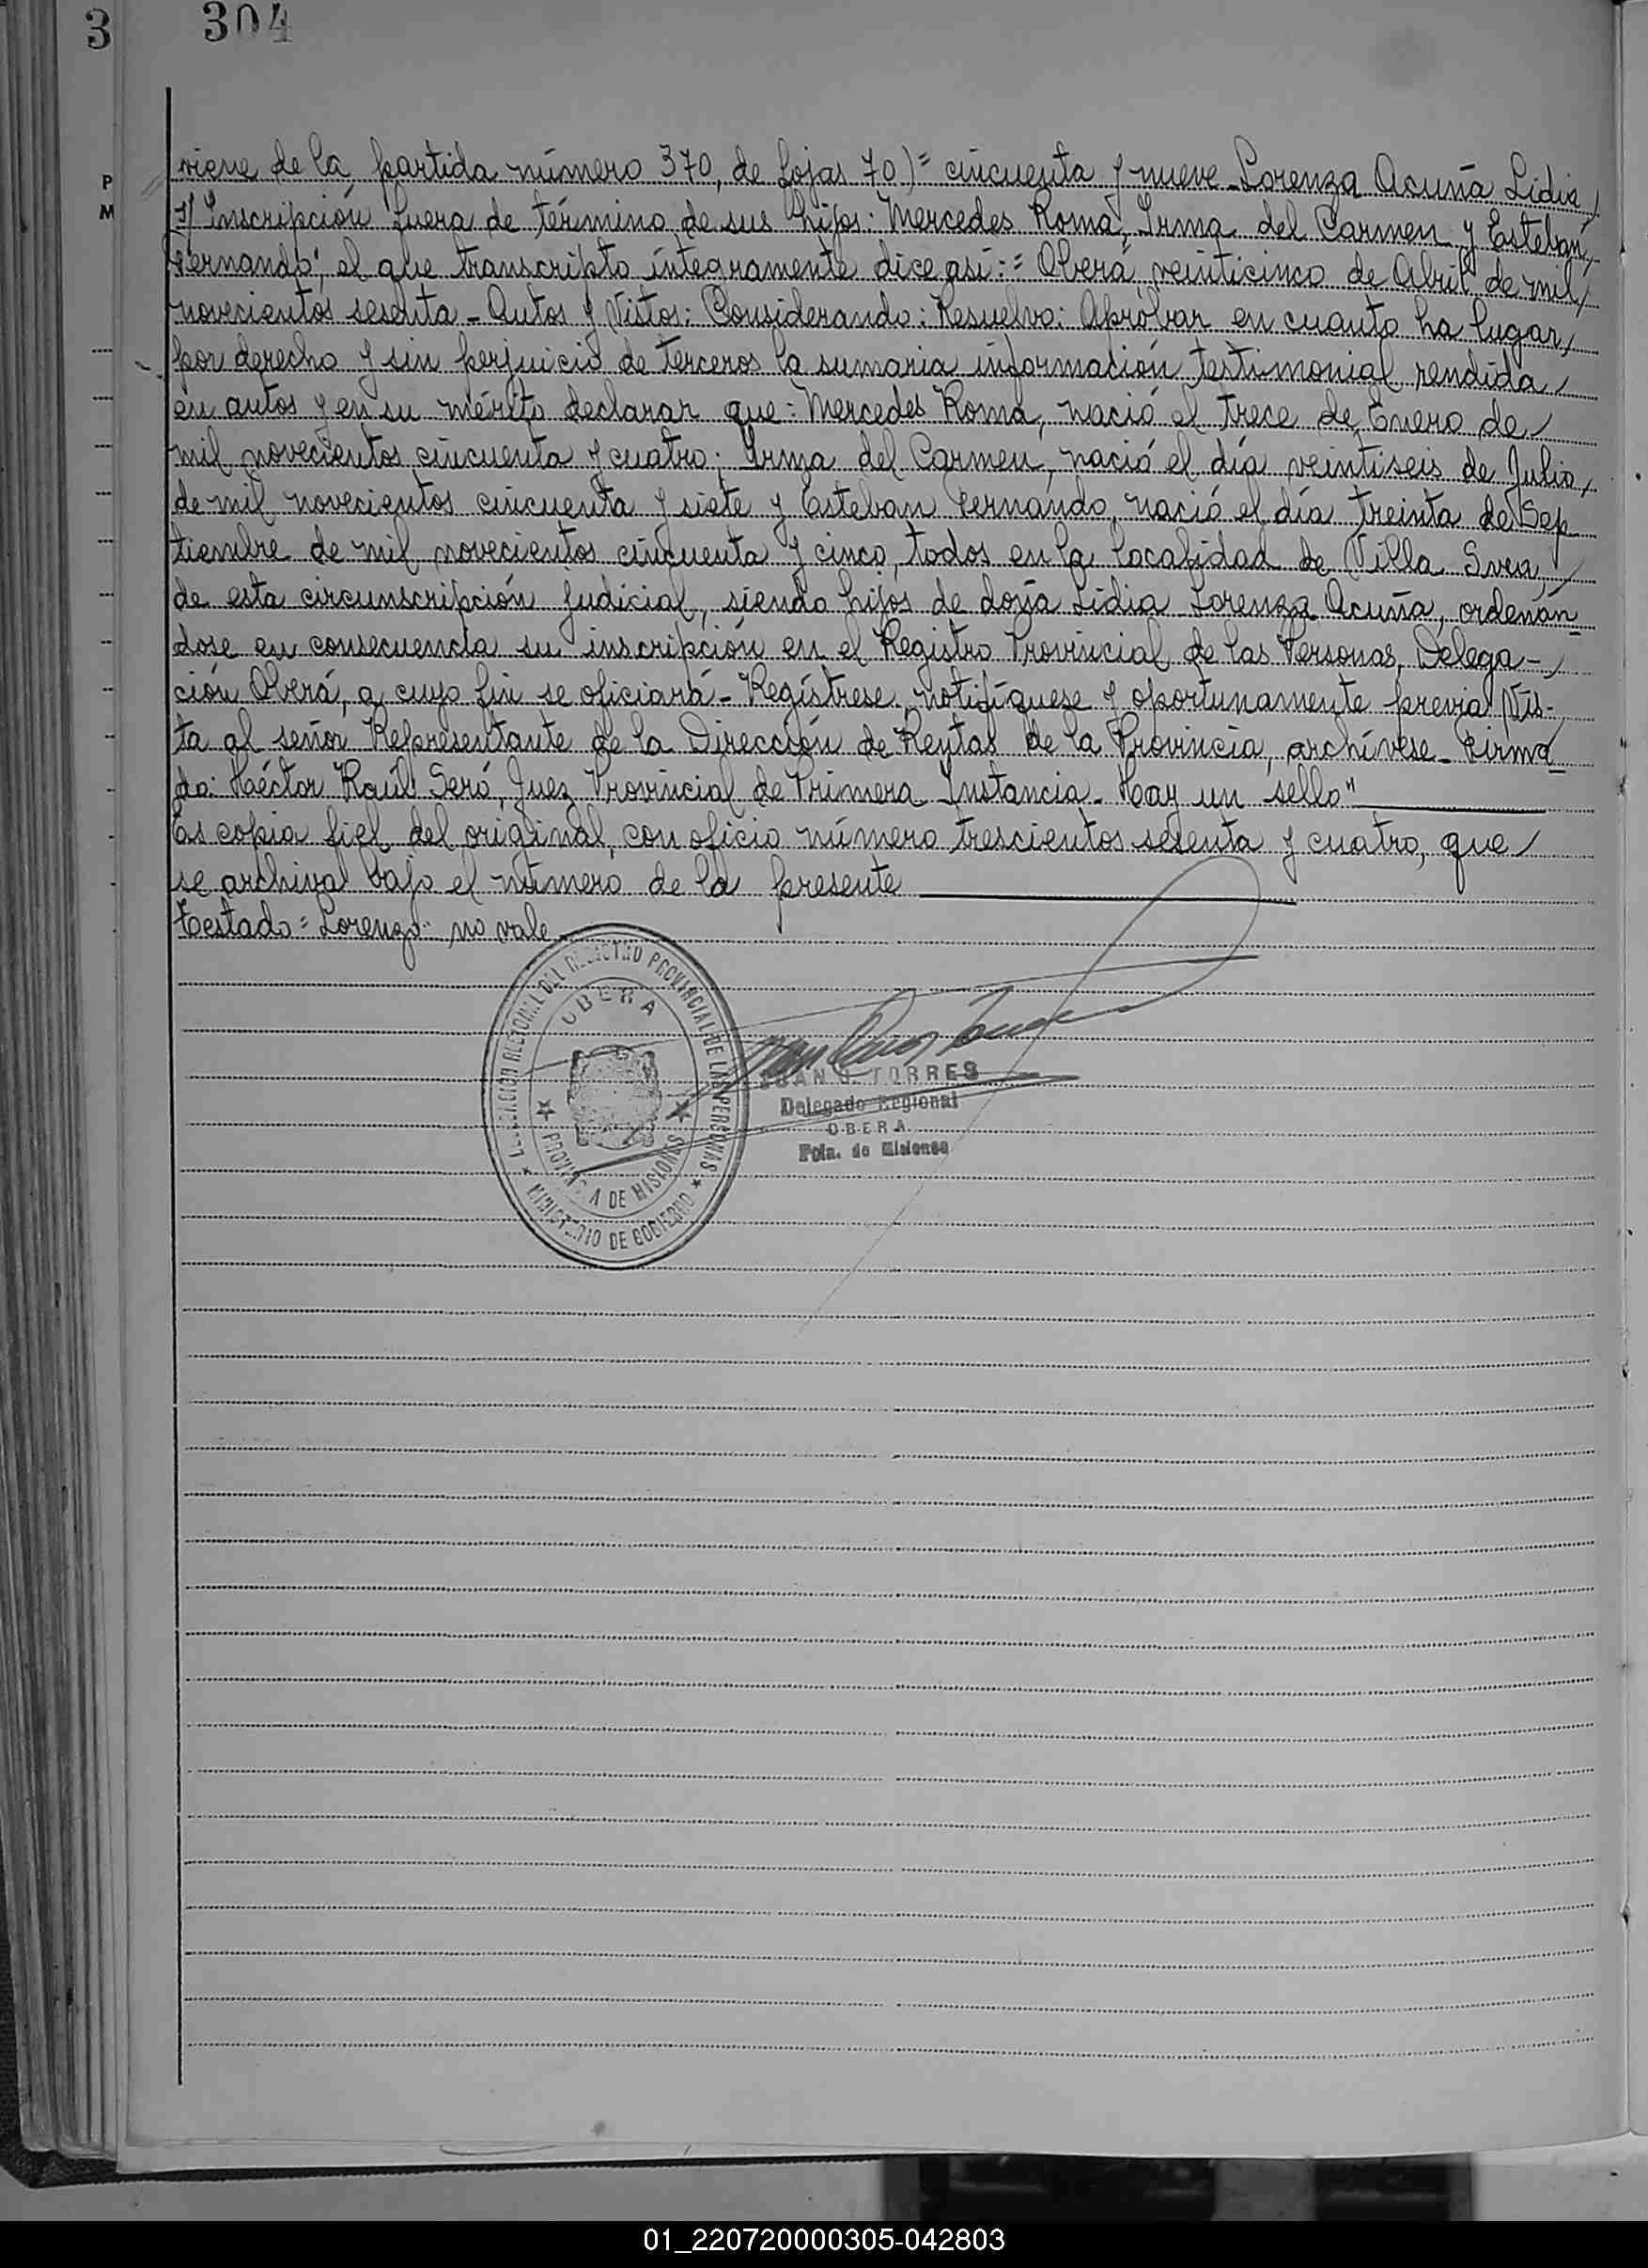 3 304
P
M
viene de la partida número 370, de fojas 70)= cincuenta y nueve - Lorenza Acuña Lidia
s/ Inscripción fuera de término de sus hijos: Mercedes Roma, Irma del Carmen y Esteban
Fernando", el que transcripto íntegramente dice así: = Oberá, veinticinco de Abril de mil
novecientos sesenta - Autos y Vistos: Considerando: Resuelvo: Aprobar en cuanto ha lugar
por derecho y sin perjuicio de terceros la sumaria información testimonial rendida
en autos y en su mérito declarar que: Mercedes Roma, nació el trece de Enero de
mil novecientos cincuenta y cuatro; Irma del Carmen, nació el día veintiseis de Julio
de mil novecientos cincuenta y siete y Esteban Fernando, nació el día treinta de Sep
tiembre de mil novecientos cincuenta y cinco, todos en la localidad de Villa Svea,
de esta circunscripción judicial, siendo hijos de doña Lidia Lorenza Acuña, ordenán_
dose en consecuencia su inscripción en el Registro Provincial de las Personas, Delega-
ción Oberá, a cuyo fin se oficiará - Regístrese, notifíquese y oportunamente previa Vis-
ta al señor Representante de la Dirección de Rentas de la Provincia, archívese - Firma_
do: Héctor Raúl Seró, Juez Provincial de Primera Instancia - Hay un sello"
Es copia fiel del original, con oficio número trescientos sesenta y cuatro, que
se archiva bajo el número de la presente
Testado = Lorenzo: no vale
DELEGACION REGIONAL DEL REGISTRO PROVINCIAL DE LAS PERSONAS
OBERA
PROVINCIA DE MISIONES
MINISTERIO DE GOBIERNO
JUAN C. TORRES
Delegado Regional
OBERA
Pcia. de Misiones
01_220720000305-042803